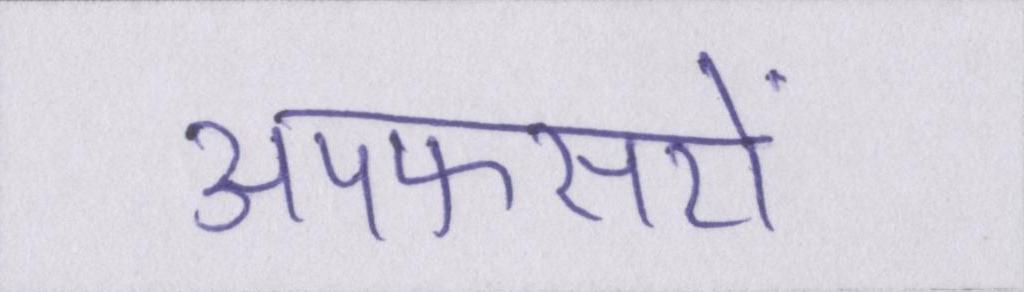 अपफसरों